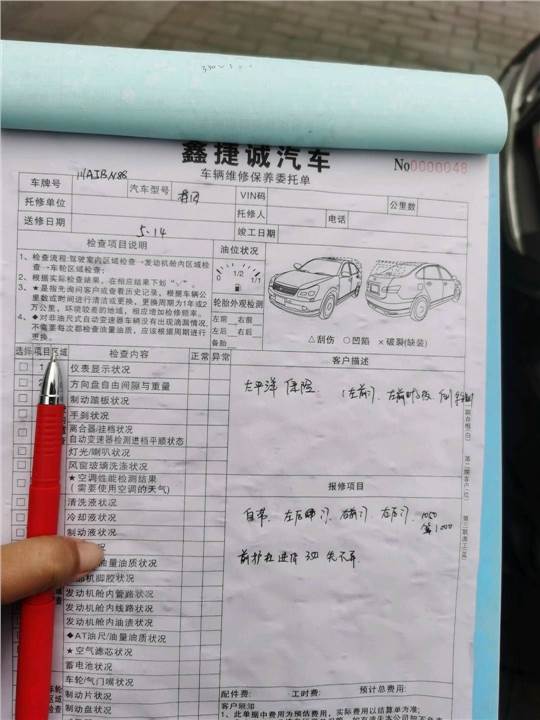 鑫捷诚汽车
车辆维修保养委托单
No0000048
车牌号 川A1BN88 汽车型号 VIN码 公里数
托修单位 托修人 电话
送修日期 5-14 竣工日期
检查项目说明 油位状况
1、检查流程:驾驶室内区域检查→发动机舱内区域检查→车轮区域检查;
2、根据实际检查结果,在相应结果下划
3、★是指先询问客户或查看历史记录,根据车辆公里数或时间进行清洁或更换,更换周期为1年或2万公里,环境较差的地域,相应增加检修频率。
4、◆对非油尺式自动变速器车辆没有出现滴漏情况,不需要每次都检查油量油质,应该根据周期进行更换。
0 1/2 1/1
轮胎外观检测
左前 右前
左后 右后
△刮伤 ○凹陷 ×破裂(缺装)
选择 项目区域 检查内容 正常 异常
客户描述
太平洋 保险 (左前门
报修项目
左后 门 右前门 右后门 1050
前护杠
1 仪表显示状况
2 方向盘自由间隙与重量
制动踏板状况
手刹状况
离合器/挂档状况
自动变速器检测进档平顺状态
灯光/喇叭状况
风窗玻璃洗涤状况
★空调性能检测结果
(需要使用空调的天气)
清洗液状况
冷却液状况
制动液状况
油量油质状况
机脚胶状况
发动机舱内管路状况
发动机舱内线路状况
发动机舱内油渍状况
◆AT油尺/油量油质状况
★空气滤芯状况
蓄电池状况
车轮/气门嘴状况
制动片状况
制动盘状况
配件费: 工时费: 预计总费用:
客户敬知
1、此单据中费用为预估费用,实际费用以结算单为准。